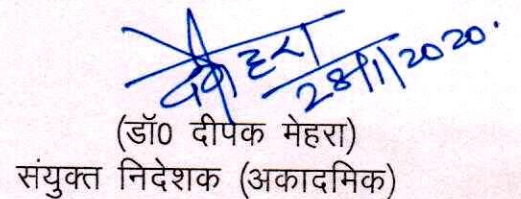 28/1/2020.
(डॉ0 दीपक मेहरा)
संयुक्त निदेशक (अकादमिक)